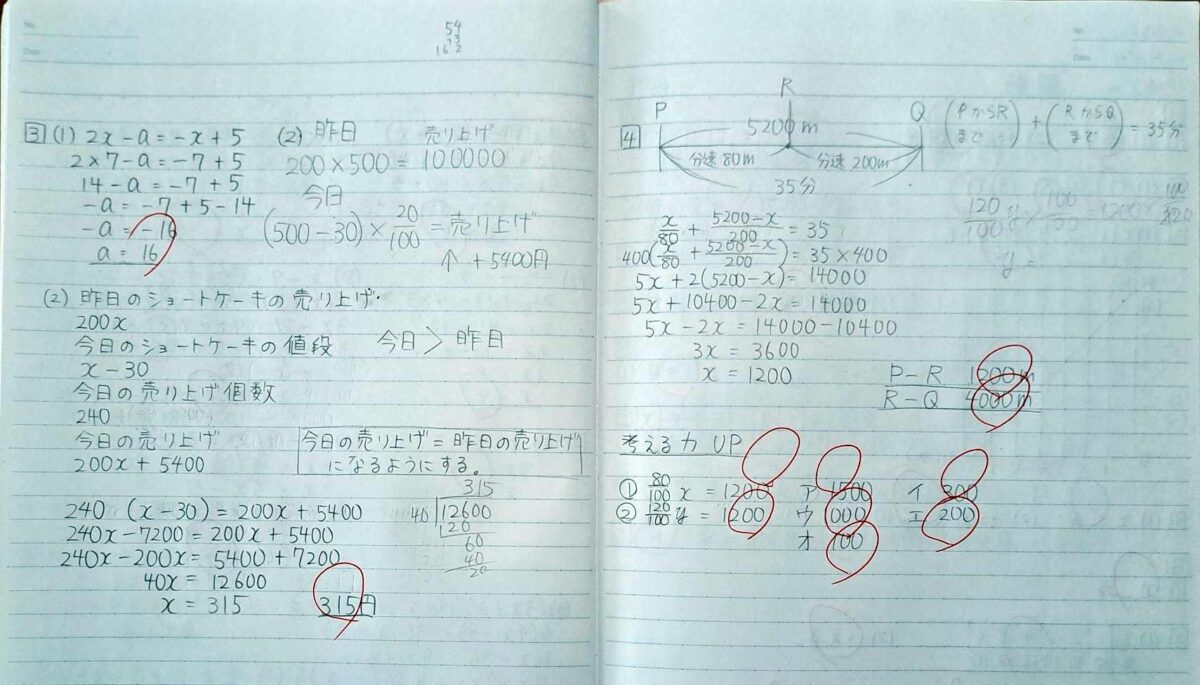 54
3
162
3 (1) 2x-a=-x+5
2×7-a=-7+5
14-a=-7+5
-a=-7+5-14
-a=-16
a=16
(2) 昨日 売り上げ
200×500=100000
今日
(500-30)×20/100=売り上げ
↑+5400円
(2) 昨日のショートケーキの売り上げ.
200x
今日のショートケーキの値段 今日>昨日
x-30
今日の売り上げ個数
240
今日の売り上げ
200x+5400
今日の売り上げ=昨日の売り上げ
になるようにする。
240 (x-30)=200x+5400
240x-7200=200x+5400
240x-200x=5400+7200
40x=12600
x=315 315円
315
40 12600
120
60
40
20
R
P Q
4 5200m
分速80m 分速200m
35分
(PからRまで)+(RからQまで)=35分
x/80+5200-x/200=35
400(x/80+5200-x/200)=35×400
5x+2(5200-x)=14000
5x+10400-2x=14000
5x-2x=14000-10400
3x=3600
x=1200
120/100 y× 100/120=1200×
y=
P-R 1200m
R-Q 4000m
考える力 UP
① 80/100 x=1200 ア 1500 イ 300
② 120/100 y=1200 ウ 1000 エ 200
オ 100